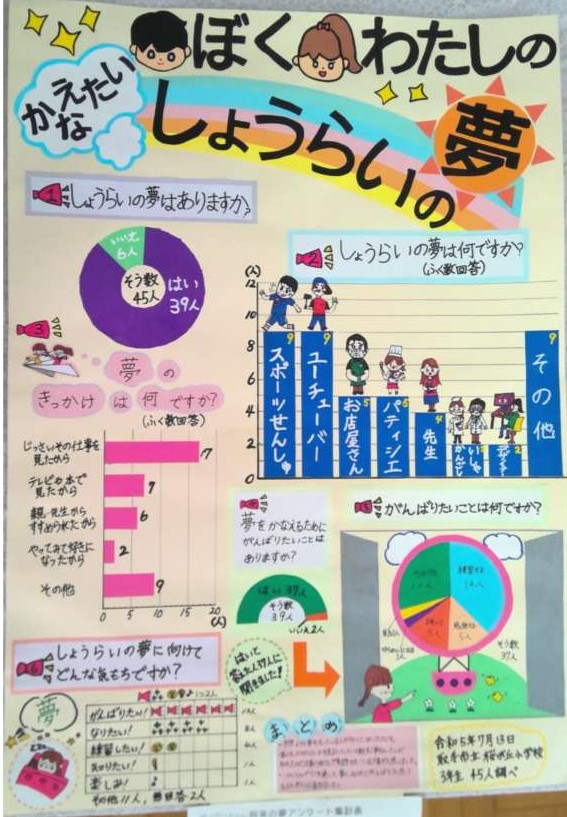 ぼく わたしの
かなえたい
しょうらいの
夢
1 しょうらいの夢はありますか?
いいえ
6人
そう数
45人
はい
39人
2 しょうらいの夢は何ですか?
(ふく数回答)
(人)
12
10
8
6
4
2
0
9
スポーツせんしゅ
9
ユーチューバー
お店屋さん
パティシエ
4
先生
かんごし
いしゃ
9
その他
3
夢の
きっかけは何ですか?
(ふく数回答)
じっさいその仕事を
見たから
17
テレビや本で
見たから
7
親・先生から
すすめられたから
6
やってみて好きに
なったから
2
その他
9
0 5 10 15 20
(人)
4
夢をかなえるために
がんばりたいことは
ありますか?
はい 37人
そう数
39人
いいえ2人
はいと
答えた人37人に
聞きました!
5 がんばりたいことは何ですか?
練習する
14人
勉強する
5人
そう数
37人
6 しょうらいの夢に向けて
どんな気もちですか?
夢
がんばりたい!
なりたい!
練習したい!
楽しみ!
その他11人,無回答2人
まとめ
令和5年7月13日
取手市立桜が丘小学校
3年生 45人調べ
将来の夢アンケート集計表